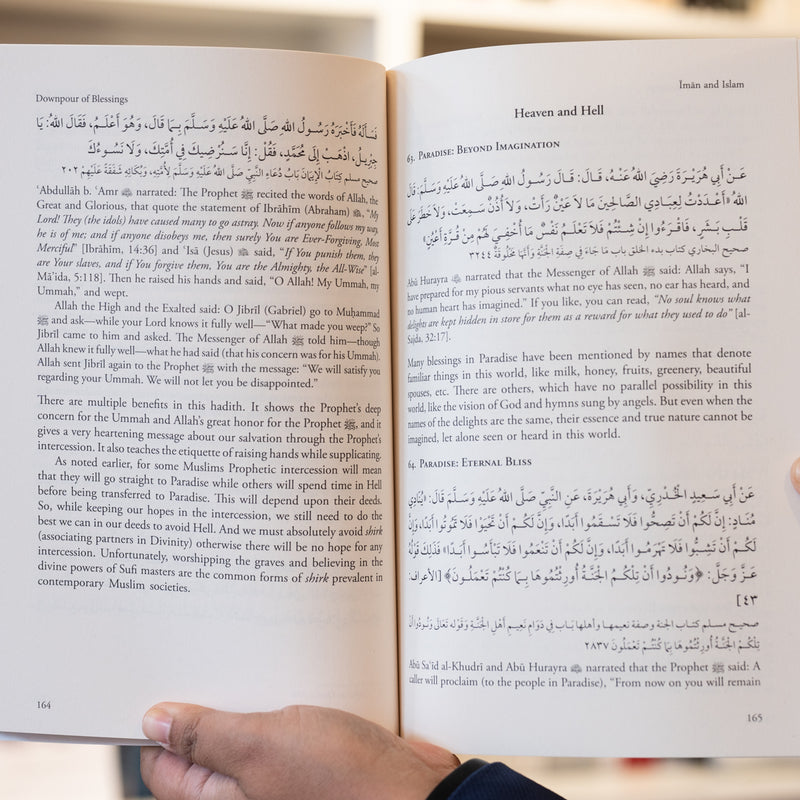 Downpour of Blessings
فَسَأَلَهُ فَأَخْبَرَهُ رَسُولُ اللهِ صَلَّى اللهُ عَلَيْهِ وَسَلَّمَ بِمَا قَالَ، وَهُوَ أَعْلَمُ، فَقَالَ اللهُ: يَا
جِبْرِيلُ، اذْهَبْ إِلَى مُحَمَّدٍ، فَقُلْ: إِنَّا سَنُرْضِيكَ فِي أُمَّتِكَ، وَلَا نَسُوءُكَ
صحيح مسلم كِتَابُ الْإِيمَانِ بَابُ دُعَاءِ النَّبِيِّ صَلَّى اللهُ عَلَيْهِ وَسَلَّمَ لِأُمَّتِهِ، وَبُكَائِهِ شَفَقَةً عَلَيْهِمْ ٢٠٢
ʿAbdullāh b. ʿAmr narrated: The Prophet ﷺ recited the words of Allah, the
Great and Glorious, that quote the statement of Ibrāhīm (Abraham), “My
Lord! They (the idols) have caused many to go astray. Now if anyone follows my way,
he is of me; and if anyone disobeys me, then surely You are Ever-Forgiving, Most
Merciful” [Ibrāhīm, 14:36] and ʿIsā (Jesus) said, “If You punish them, they
are Your slaves, and if You forgive them, You are the Almighty, the All-Wise” [al-
Māʾida, 5:118]. Then he raised his hands and said, “O Allah! My Ummah, my
Ummah,” and wept.
Allah the High and the Exalted said: O Jibrīl (Gabriel) go to Muḥammad
ﷺ and ask—while your Lord knows it fully well—“What made you weep?” So
Jibrīl came to him and asked. The Messenger of Allah ﷺ told him—though
Allah knew it fully well—what he had said (that his concern was for his Ummah).
Allah sent Jibrīl again to the Prophet ﷺ with the message: “We will satisfy you
regarding your Ummah. We will not let you be disappointed.”
There are multiple benefits in this hadith. It shows the Prophet’s deep
concern for the Ummah and Allah’s great honor for the Prophet ﷺ, and it
gives a very heartening message about our salvation through the Prophet’s
intercession. It also teaches the etiquette of raising hands while supplicating.
As noted earlier, for some Muslims Prophetic intercession will mean
that they will go straight to Paradise while others will spend time in Hell
before being transferred to Paradise. This will depend upon their deeds.
So, while keeping our hopes in the intercession, we still need to do the
best we can in our deeds to avoid Hell. And we must absolutely avoid shirk
(associating partners in Divinity) otherwise there will be no hope for any
intercession. Unfortunately, worshipping the graves and believing in the
divine powers of Sufi masters are the common forms of shirk prevalent in
contemporary Muslim societies.
164
Īmān and Islam
Heaven and Hell
63. Paradise: Beyond Imagination
عَنْ أَبِي هُرَيْرَةَ رَضِيَ اللهُ عَنْهُ، قَالَ: قَالَ رَسُولُ اللهِ صَلَّى اللهُ عَلَيْهِ وَسَلَّمَ: قَالَ
اللهُ «أَعْدَدْتُ لِعِبَادِي الصَّالِحِينَ مَا لَا عَيْنٌ رَأَتْ، وَلَا أُذُنٌ سَمِعَتْ، وَلَا خَطَرَ عَلَى
قَلْبِ بَشَرٍ، فَاقْرَءُوا إِنْ شِئْتُمْ فَلَا تَعْلَمُ نَفْسٌ مَا أُخْفِيَ لَهُمْ مِنْ قُرَّةِ أَعْيُنٍ»
صحيح البخاري كتاب بدء الخلق باب مَا جَاءَ فِي صِفَةِ الْجَنَّةِ وَأَنَّهَا مَخْلُوقَةٌ ٣٢٤٤
Abū Hurayra narrated that the Messenger of Allah ﷺ said: Allah says, “I
have prepared for my pious servants what no eye has seen, no ear has heard, and
no human heart has imagined.” If you like, you can read, “No soul knows what
delights are kept hidden in store for them as a reward for what they used to do” [al-
Sajda, 32:17].
Many blessings in Paradise have been mentioned by names that denote
familiar things in this world, like milk, honey, fruits, greenery, beautiful
spouses, etc. There are others, which have no parallel possibility in this
world, like the vision of God and hymns sung by angels. But even when the
names of the delights are the same, their essence and true nature cannot be
imagined, let alone seen or heard in this world.
64. Paradise: Eternal Bliss
عَنْ أَبِي سَعِيدٍ الْخُدْرِيِّ، وَأَبِي هُرَيْرَةَ، عَنِ النَّبِيِّ صَلَّى اللهُ عَلَيْهِ وَسَلَّمَ قَالَ: «يُنَادِي
مُنَادٍ: إِنَّ لَكُمْ أَنْ تَصِحُّوا فَلَا تَسْقَمُوا أَبَدًا، وَإِنَّ لَكُمْ أَنْ تَحْيَوْا فَلَا تَمُوتُوا أَبَدًا، وَإِنَّ
لَكُمْ أَنْ تَشِبُّوا فَلَا تَهْرَمُوا أَبَدًا، وَإِنَّ لَكُمْ أَنْ تَنْعَمُوا فَلَا تَبْأَسُوا أَبَدًا» فَذَلِكَ قَوْلُهُ
عَزَّ وَجَلَّ: ﴿وَنُودُوا أَنْ تِلْكُمُ الْجَنَّةُ أُورِثْتُمُوهَا بِمَا كُنْتُمْ تَعْمَلُونَ﴾ [الأعراف:
٤٣]
صحيح مسلم كتاب الجنة وصفة نعيمها وأهلها بَاب فِي دَوَامِ نَعِيمِ أَهْلِ الْجَنَّةِ وَقَوْلِهِ تَعَالَى وَنُودُوا أَنْ
تِلْكُمُ الْجَنَّةُ أُورِثْتُمُوهَا بِمَا كُنْتُمْ تَعْمَلُونَ ٢٨٣٧
Abū Saʿīd al-Khudrī and Abū Hurayra narrated that the Prophet ﷺ said: A
caller will proclaim (to the people in Paradise), “From now on you will remain
165